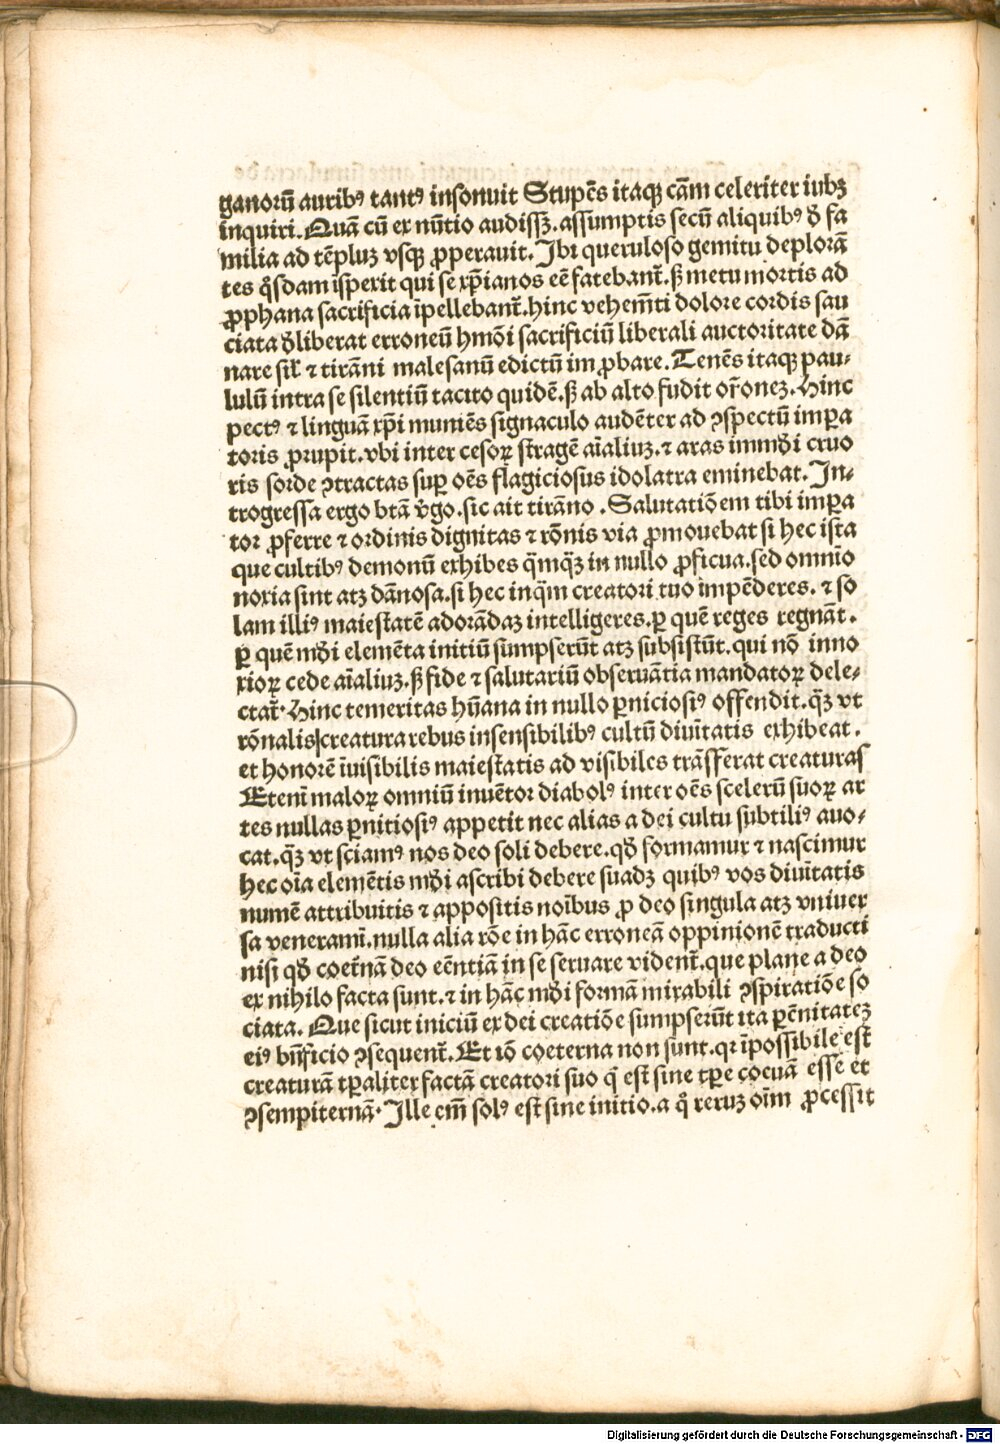 ganorū auribꝰ tantꝰ insonuit Stupēs itaqꝫ cām celeriter iubꝫ
inquiri. Quā cū ex nūtio audissꝫ. assumptis secū aliquibꝰ ð fa
milia ad tēpluꝫ vsqꝫ ꝓperauit. Ibi queruloso gemitu deplorā
tes q̊sdam īspexit qui se xp̄ianos eē fatebanť. sꝫ metu mortis ad
ꝓphana sacrificia īpellebanť. hinc vehem̄ti dolore cordis sau
ciata ðliberat erroneū hmōi sacrificiū liberali auctoritate dā
nare sil̄ ⁊ tirāni malesanū edictū im ꝓbare. Tenēs itaqꝫ pau⸗
lulū intra se silentiū tacito quidē. sꝫ ab alto fudit or̄onez. Hinc
pectꝰ ⁊ linguā xp̄i muniēs signaculo audēter ad ꝯspectū impa̲
toris ꝓrupit. vbi inter cesoꝝ stragē aīaliuꝫ. ⁊ aras immūdi cruo
ris sorde ꝯtractas suꝑ oēs flagiciosus idolatra eminebat. In⸗
trogressa ergo btā v̊go. sic ait tirāno . Salutatiōem tibi impa̲
tor ꝓferre ⁊ ordinis dignitas ⁊ rōnis via ꝓmouebat si hec ista
que cultibꝰ demonū exhibes q̄mqꝫ̄ in nullo ꝓficua. sed omnīo
noxia sint atꝫ dānosa. si hec inq̄m creatori tuo impēderes. ⁊ so
lam illiꝰ maiestatē adorādaꝫ intelligeres. ꝑ quē reges regnāt.
ꝑ quē mūdi elemēta initiū sumpserūt atꝫ subsistūt. qui nō inno
xioꝝ cede aīaliuꝫ. sꝫ fide ⁊ salutariū obseruātia mandatoꝝ dele⸗
ctať. Hinc temeritas hūana in nullo ꝑniciosiꝰ offendit. qꝫ̄ vt
rōnalis creatura rebus insensibilibꝰ cultū diuītatis exhibeat.
et honorē īuisibilis maiestatis ad visibiles trāsferat creaturas
Etenī maloꝝ omniū inuētor diabolꝰ inter oēs scelerū suoꝝ ar
tes nullas ꝑnitiosiꝰ appetit nec alias a dei cultu subtiliꝰ auo⸗
cat. qꝫ̄ vt sciamꝰ nos deo soli debere. qð formamur ⁊ nascimur
hec oīa elemētis mūdi ascribi debere suadꝫ quibꝰ vos diuītatis
numē attribuitis ⁊ appositis noībus ꝓ deo singula atꝫ vniuer
sa veneramī. nulla alia rōe in hāc erroneā oppinionē traducti
nisi qð coeťnā deo eēntiā in se seruare videnť. que plane a deo
ex nihilo facta sunt. ⁊ in hāc mūdi formā mirabili ꝯspiratiōe so
ciata. Que sicut iniciū ex dei creatiōe sumpserūt ita ꝑēnitatez
eiꝰ bn̄ficio ꝯsequenť. Et iō coeterna non sunt. qꝛ īpossibile est
creaturā tꝑaliter factā creatori suo q̄ est sine tꝑe coeuā esse et
ꝯsempiternā. Ille em̄ solꝰ est sine initio. a q̊ reruꝫ oīm ꝓcessit
Digitalisierung gefördert durch die Deutsche Forschungsgemeinschaft - DFG